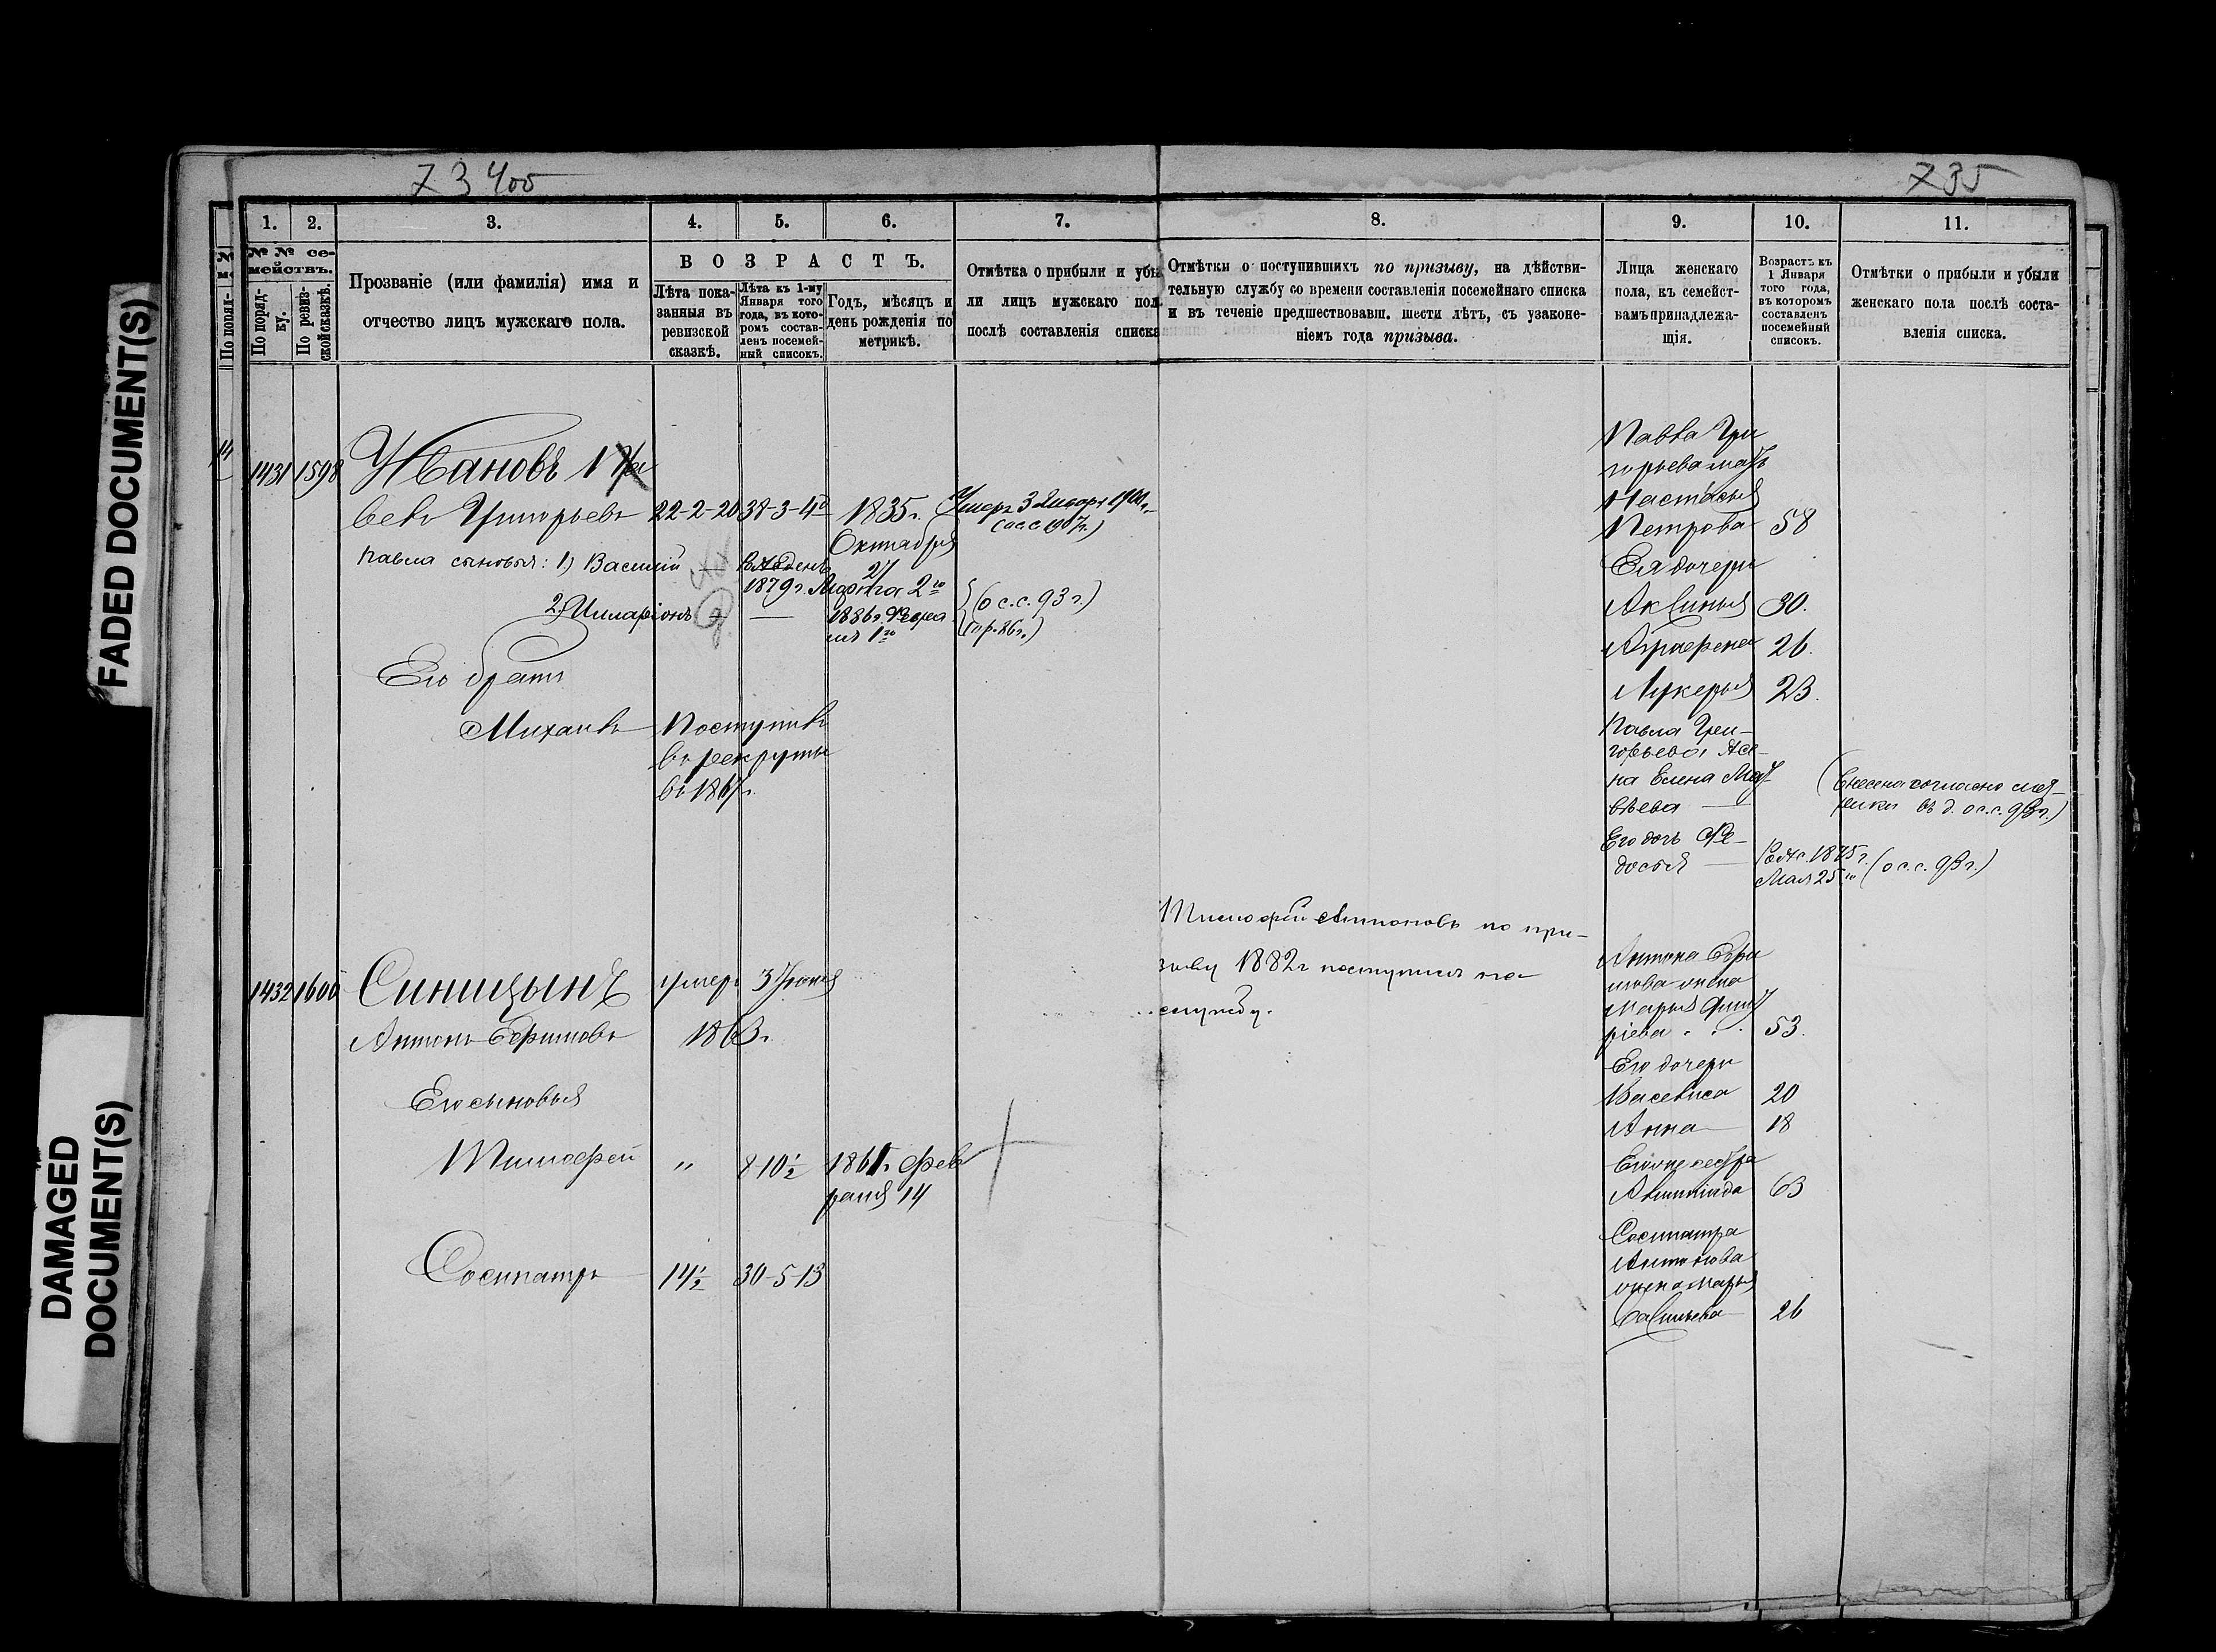 FADED DOCUMENT(S)
DAMAGED
DOCUMENT(S)
735
1.
2.
3.
4.
5.
6.
7.
8.
9.
10.
11.
№ № се-
мействъ.
По поряд-
ку.
По ревиз-
ской сказкѣ.
Прозваніе (или фамилія) имя и
отчество лицъ мужскаго пола.
ВОЗРАСТЪ.
Лѣта пока-
занныя въ
ревизской
сказкѣ.
Лѣта къ 1-му
Января того
года, въ кото-
ромъ состав-
ленъ посемей-
ный списокъ.
Годъ, мѣсяцъ и
день рожденія по
метрикѣ.
Отмѣтка о прибыли и убы
ли лицъ мужскаго пол
послѣ составленія списка
Отмѣтки о поступившихъ по призыву, на дѣйстви-
тельную службу со времени составленія посемейнаго списка
и въ теченіе предшествовавш. шести лѣтъ, съ узаконе-
ніемъ года призыва.
Лица женскаго
пола, къ семейст-
вамъ принадлежа-
щія.
Возрастъ къ
1 Января
того года,
въ которомъ
составленъ
посемейный
списокъ.
Отмѣтки о прибыли и убыли
женскаго пола послѣ соста-
вленія списка.
1431
1598
Григорьевъ
22-2-20
1835 г.
Октября
Умеръ 3 Января
Павла сыновья: 1) Василій
1879 г. Марта 2го
2) Илларіонъ
1886 г.
(о с.с. 93 г.)
Его братъ
Михаилъ
Поступилъ
въ рекруты
горьева мать
Настасья
Петрова 58
Ея дочери
Аксинья 30.
Аграфена 26.
Лукерья 23.
Павла Гри-
горьева же-
на Елена Мат-
вѣева
(Внесена согласно мет-
рики въ д. о с.с. 93 г.)
Его дочь Ѳе-
досья
Родлс. 1875 г.
Мая 25го (о с.с. 93 г.)
1432
1600
Синицынъ
Антонъ Ефимовъ
умеръ 3 Іюня
1863 г.
Тимофей Антоновъ по при-
зыву 1882 г поступилъ на
службу.
Антона Ефи
мова жена
Марья Дмит
ріева 53.
Его сыновья
Его дочери
Василиса 20
Анна 18
Тимофей " 8-10½ 1861 г. Фев
раля 14
63
Сосипатръ 14½ 30-5-13
Сосипатра
Антонова
жена Марья
26